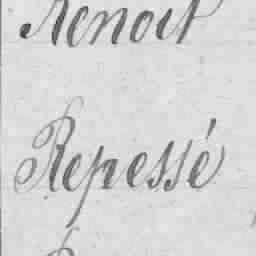 Renoit
Repessé